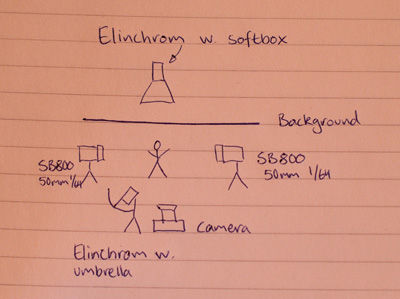 Elinchrom w. softbox
Background
SB800
50mm 1/64
SB800
50mm 1/64
Camera
Elinchrom w.
umbrella